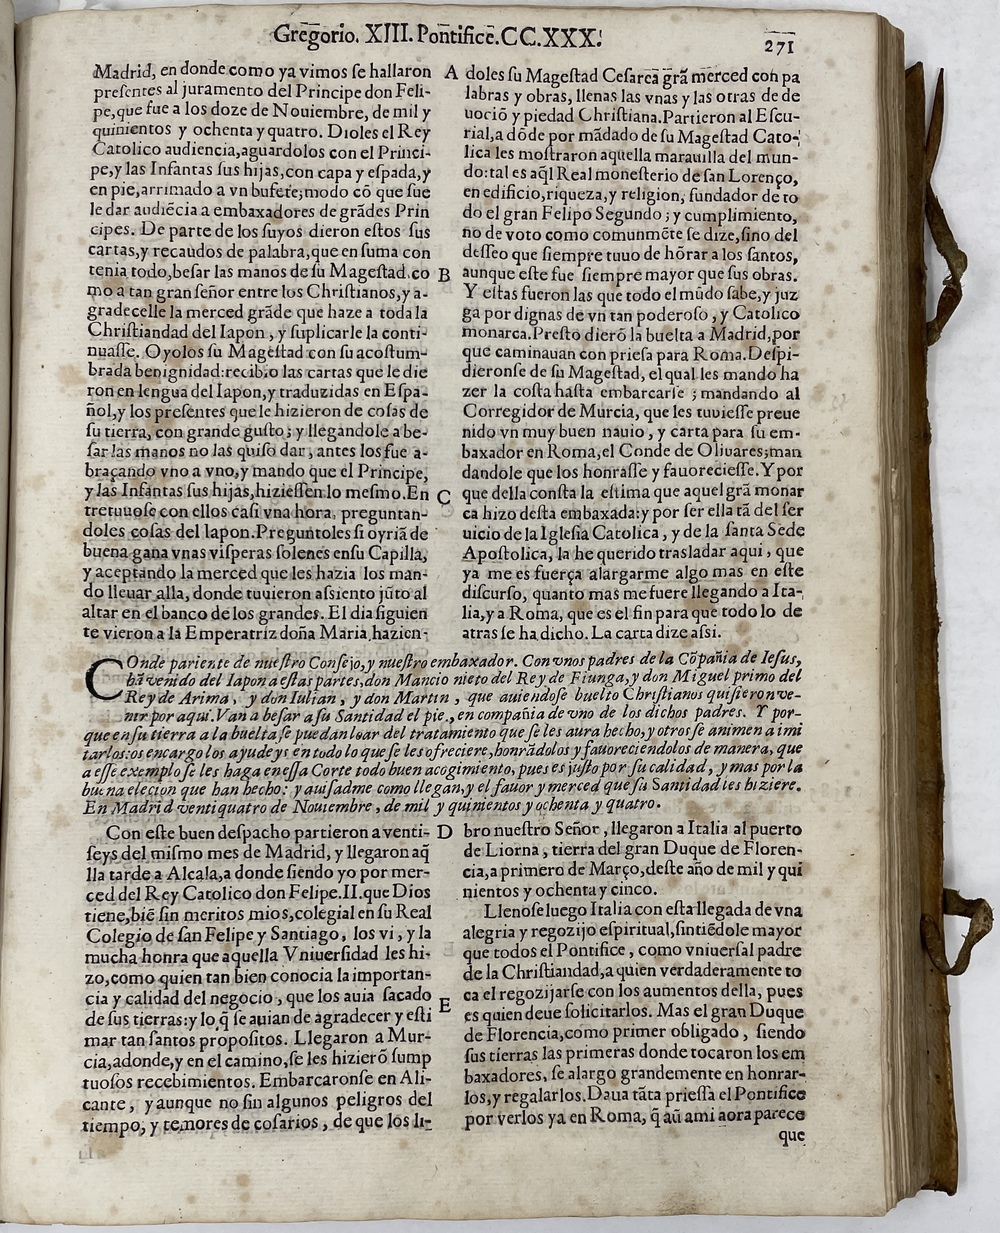 Gregorio. XIII. Pontifice. CC.XXX.
271
Madrid, en donde como ya vimos ſe hallaron
preſentes al juramento del Principe don Feli-
pe, que fue a los doze de Nouiembre, de mil y
quinientos y ochenta y quatro. Dioles el Rey
Catolico audiencia, aguardolos con el Princi-
pe, y las Infantas ſus hijas, con capa y eſpada, y
en pie, arrimado a vn bufete; modo cõ que ſue
le dar audiẽcia a embaxadores de grãdes Prin
cipes. De parte de los ſuyos dieron eſtos ſus
cartas, y recaudos de palabra, que en ſuma con
tenia todo, beſar las manos de ſu Mageſtad. co
mo a tan gran ſeñor entre los Chriſtianos, y a-
gradecelle la merced grãde que haze a toda la
Chriſtiandad del Iapon, y ſuplicarle la conti-
nuaſſe. Oyolos ſu Mageſtad con ſu acoſtum-
brada benignidad: recibio las cartas que le die
ron en lengua del Iapon, y traduzidas en Eſpa-
ñol, y los preſentes que le hizieron de coſas de
ſu tierra, con grande guſto; y llegandole a be-
ſar las manos no las quiſo dar, antes los fue a-
braçando vno a vno, y mando que el Principe,
y las Infantas ſus hijas, hizieſſen lo meſmo. En
tretuuoſe con ellos caſi vna hora, preguntan-
doles coſas del Iapon. Preguntoles ſi oyriã de
buena gana vnas viſperas ſolenes en ſu Capilla,
y aceptando la merced que les hazia los man-
do lleuar alla, donde tuuieron aſsiento jũto al
altar en el banco de los grandes. El dia ſiguien
te vieron a la Emperatriz doña Maria, hazien-
A
B
C
doles ſu Mageſtad Ceſarea grã merced con pa
labras y obras, llenas las vnas y las otras de de
uociõ y piedad Chriſtiana. Partieron al Eſcu-
rial, a dõde por mãdado de ſu Mageſtad Cato-
lica les moſtraron aquella marauilla del mun-
do: tal es aq̃l Real moneſterio de ſan Lorenço,
en edificio, riqueza, y religion, fundador de to
do el gran Felipo Segundo; y cumplimiento,
no de voto como comunmẽte ſe dize, ſino del
deſſeo que ſiempre tuuo de hõrar a los ſantos,
aunque eſte fue ſiempre mayor que ſus obras.
Y eſtas fueron las que todo el mũdo ſabe, y juz
ga por dignas de vn tan poderoſo, y Catolico
monarca. Preſto dierõ la buelta a Madrid, por
que caminauan con prieſa para Roma. Deſpi-
dieronſe de ſu Mageſtad, el qual les mando ha
zer la coſta haſta embarcarſe; mandando al
Corregidor de Murcia, que les tuuieſſe preue
nido vn muy buen nauio, y carta para ſu em-
baxador en Roma, el Conde de Oliuares; man
dandole que los honraſſe y fauorecieſſe. Y por
que della conſta la eſtima que aquel grã monar
ca hizo deſta embaxada: y por ſer ella tã del ſer
uicio de la Igleſia Catolica, y de la ſanta Sede
Apoſtolica, la he querido trasladar aqui, que
ya me es fuerça alargarme algo mas en eſte
diſcurſo, quanto mas me fuere llegando a Ita-
lia, y a Roma, que es el fin para que todo lo de
atras ſe ha dicho. La carta dize aſsi.
COnde pariente de nueſtro Conſejo, y nueſtro embaxador. Con vnos padres de la Cõpañia de Ieſus,
hã venido del Iapon a eſtas partes, don Mancio nieto del Rey de Fiunga, y don Miguel primo del
Rey de Arima, y don Iulian, y don Martin, que auiendoſe buelto Chriſtianos quiſieron ve-
nir por aqui. Van a beſar a ſu Santidad el pie, en compañia de vno de los dichos padres. Y por-
que en ſu tierra a la buelta ſe puedan loar del tratamiento que ſe les aura hecho, y otros ſe animen a imi
tarlos: os encargo los ayudeys en todo lo que ſe les ofreciere, honrãdolos y fauoreciendolos de manera, que
a eſſe exemplo ſe les haga en eſſa Corte todo buen acogimiento, pues es juſto por ſu calidad, y mas por la
buena elecion que han hecho: y auiſadme como llegan, y el fauor y merced que ſu Santidad les hiziere.
En Madrid ventiquatro de Nouiembre, de mil y quinientos y ochenta y quatro.
Con eſte buen deſpacho partieron a venti-
ſeys del miſmo mes de Madrid, y llegaron aq̃
lla tarde a Alcala, a donde ſiendo yo por mer-
ced del Rey Catolico don Felipe. II. que Dios
tiene, biẽ ſin meritos mios, colegial en ſu Real
Colegio de ſan Felipe y Santiago, los vi, y la
mucha honra que aquella Vniuerſidad les hi-
zo, como quien tan bien conocia la importan-
cia y calidad del negocio, que los auia ſacado
de ſus tierras: y lo q̃ ſe auian de agradecer y eſti
mar tan ſantos propoſitos. Llegaron a Mur-
cia, adonde, y en el camino, ſe les hizierõ ſump
tuoſos recebimientos. Embarcaronſe en Ali-
cante, y aunque no ſin algunos peligros del
tiempo, y temores de coſarios, de que los li-
D
E
bro nueſtro Señor, llegaron a Italia al puerto
de Liorna, tierra del gran Duque de Floren-
cia, a primero de Março, deſte año de mil y qui
nientos y ochenta y cinco.
Llenoſe luego Italia con eſta llegada de vna
alegria y regozijo eſpiritual, ſintiẽdole mayor
que todos el Pontifice, como vniuerſal padre
de la Chriſtiandad, a quien verdaderamente to
ca el regozijarſe con los aumentos della, pues
es quien deue ſolicitarlos. Mas el gran Duque
de Florencia, como primer obligado, ſiendo
ſus tierras las primeras donde tocaron los em
baxadores, ſe alargo grandemente en honrar-
los, y regalarlos. Daua tãta prieſſa el Pontifice
por verlos ya en Roma, q̃ aũ a mi aora parece
que